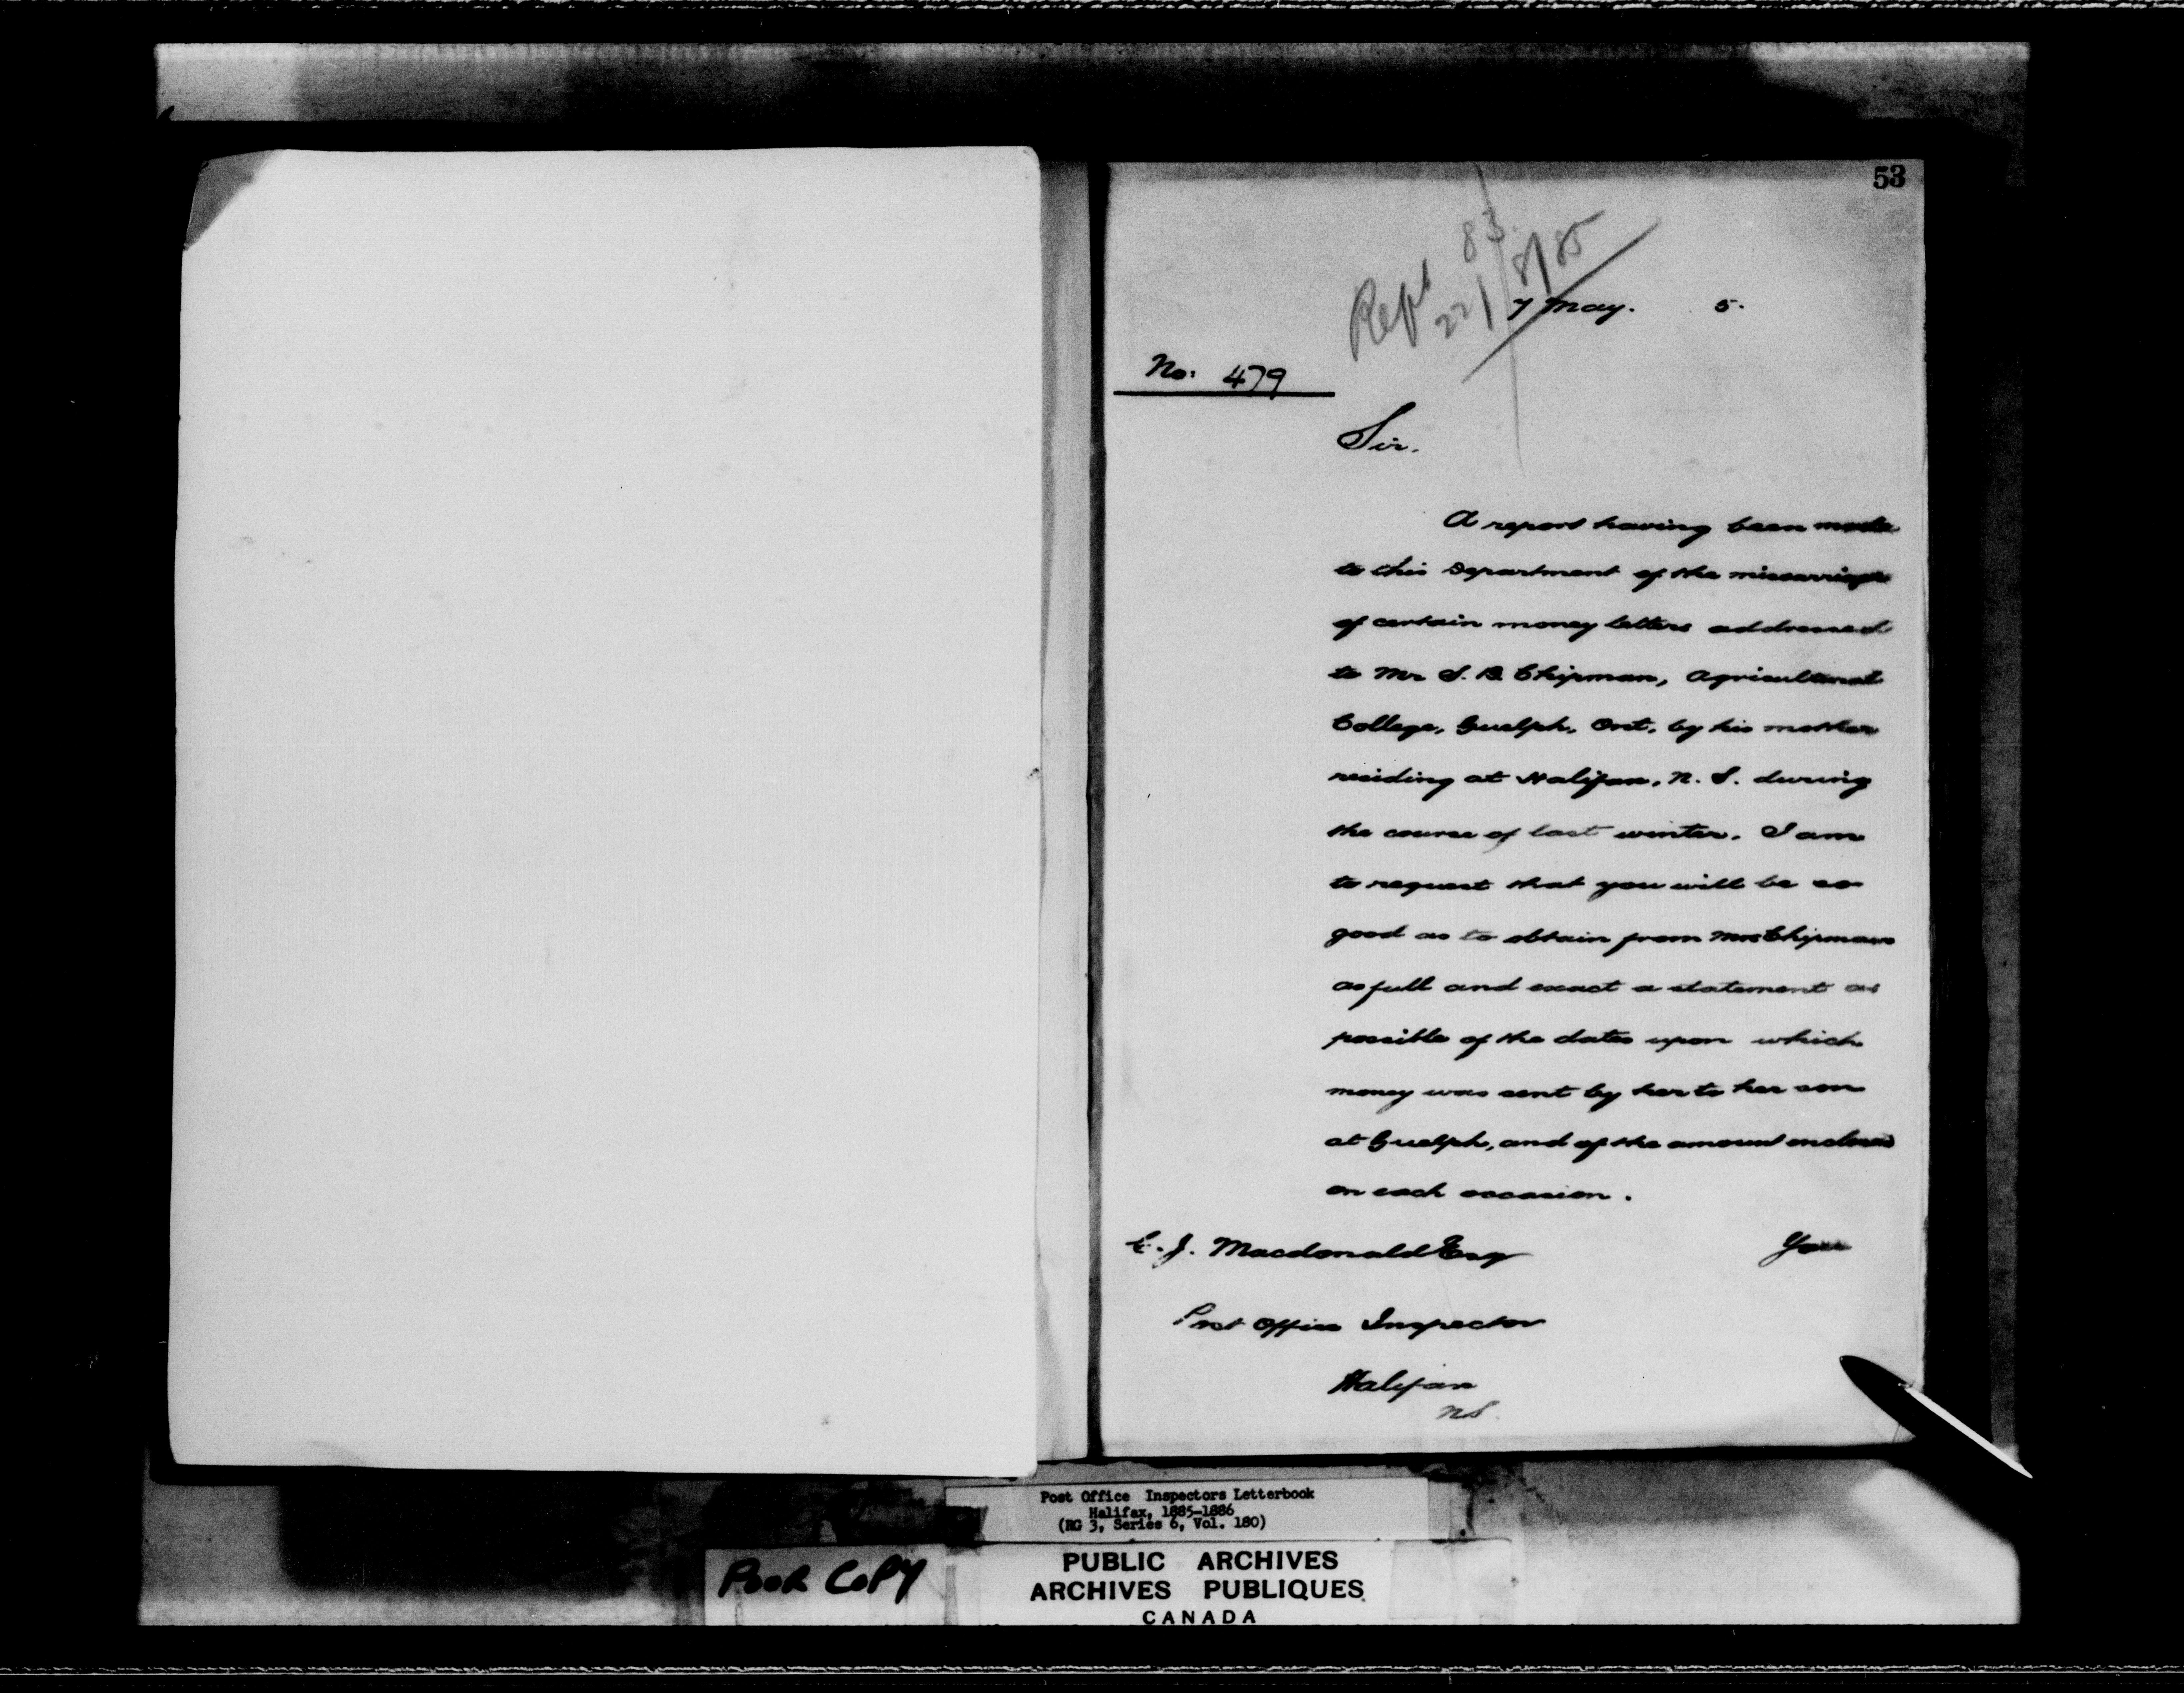 53
Rept 83.
22/8/85
7 May. 5.
No: 479
Sir.
A report having been made
to this Department of the miscarriage
of certain money letters addressed
to Mr S. B. Chipman, Agricultural
College, Guelph, Ont, by his mother
residing at Halifax, N. S. during
the course of last winter. I am
to request that you will be so
good as to obtain from Mrs Chipman
as full and exact a statement as
possible of the dates upon which
money was sent by her to her son
at Guelph, and of the amount enclosed
on each occasion.
C. J. Macdonald Esq
You
Post Office Inspector
Halifax
NS.
Post Office Inspectors Letterbook
Halifax, 1885-1886
(RG 3, Series 6, Vol. 180)
POOR COPY
PUBLIC ARCHIVES
ARCHIVES PUBLIQUES
CANADA